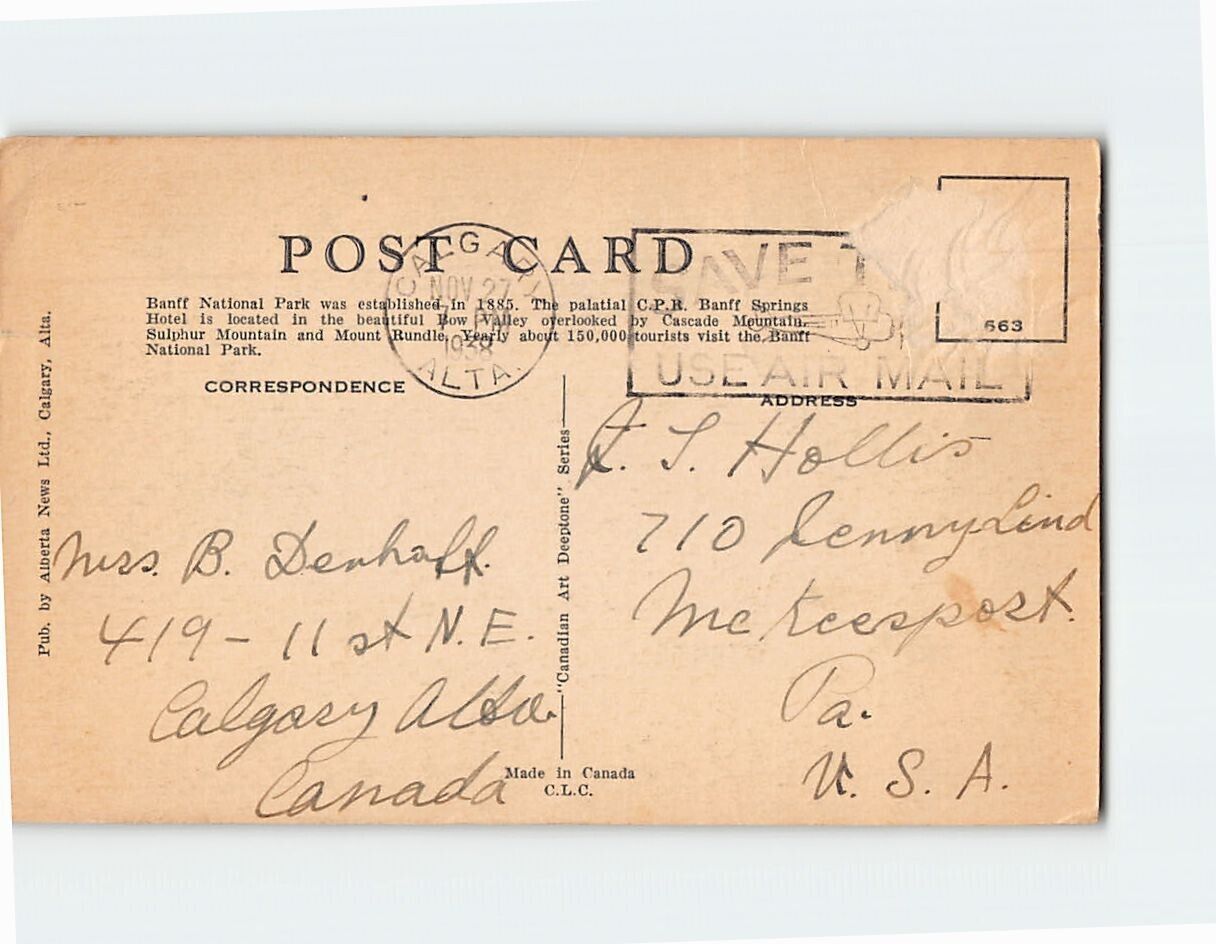 POST CARD
CALGARY
NOV 27
7 PM
1938
ALTA.
SAVE T
USE AIR MAIL
663
Banff National Park was established in 1885. The palatial C.P.R. Banff Springs
Hotel is located in the beautiful Bow Valley overlooked by Cascade Mountain,
Sulphur Mountain and Mount Rundle. Yearly about 150,000 tourists visit the Banff
National Park.
CORRESPONDENCE
ADDRESS
Pub. by Alberta News Ltd., Calgary, Alta.
"Canadian Art Deeptone" Series
Miss. B. Denhoff.
419 - 11 st N.E.
Calgary Alta.
Canada
S. Hollis
710 Jenny Lind
McKeesport.
Pa.
U. S. A.
Made in Canada
C.L.C.